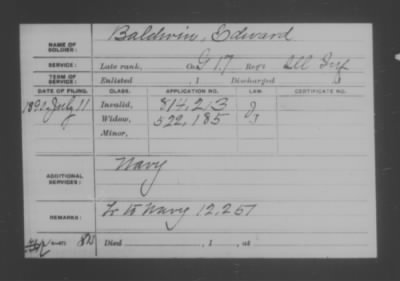 Baldwin, Edward
NAME OF SOLDIER:
SERVICE: Late rank, Co. G 17 Reg't Ill Inf
TERM OF SERVICE: Enlisted , 1 Discharged , 1
DATE OF FILING. CLASS. APPLICATION NO. LAW. CERTIFICATE NO.
1890 July 11 Invalid, 814,213 J
Widow, 522,185 J
Minor,
ADDITIONAL SERVICES: Navy
REMARKS: Navy 12,251
Died , 1 , at